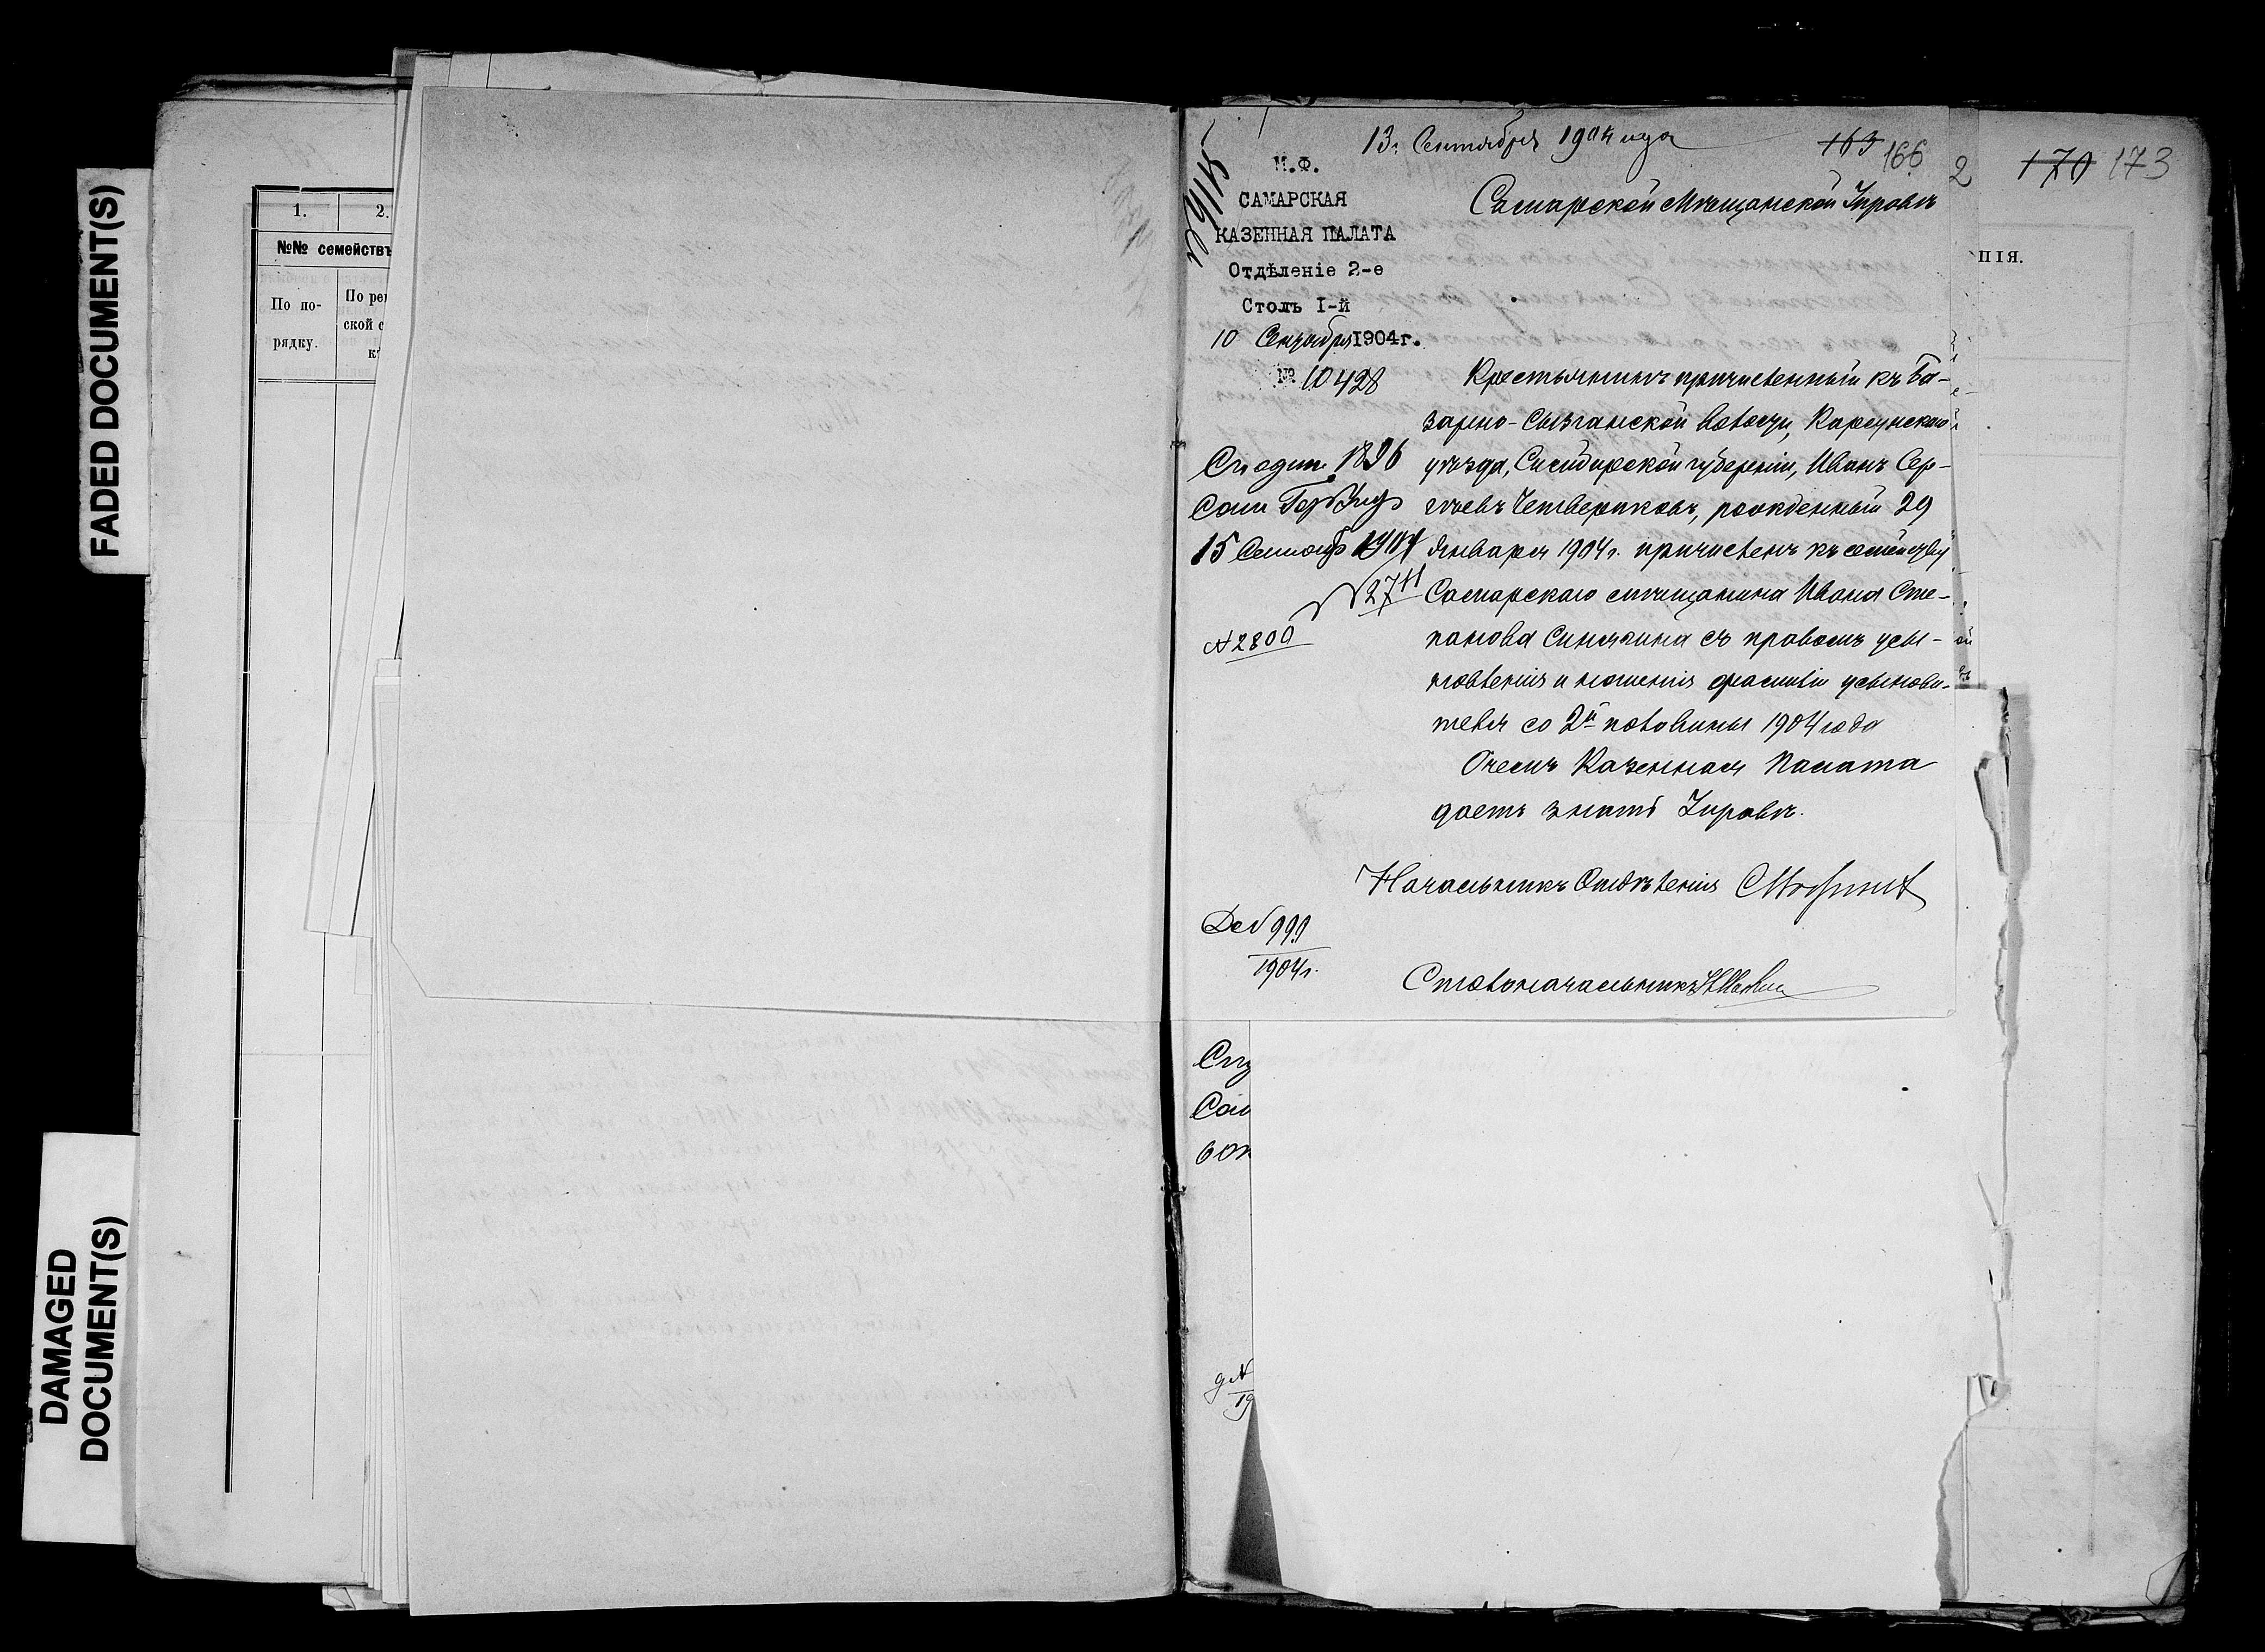 FADED DOCUMENT(S)
DAMAGED
DOCUMENT(S)
1. 2.
№№ семействъ
По по-
рядку.
По рев
ской с
к
13. Сентября 1904 года
163 166
2 170 173
М.Ф.
САМАРСКАЯ
КАЗЕННАЯ ПАЛАТА
Отдѣленіе 2-е
Столъ I-й
10 Сентября 1904г.
№ 10428
Самарской Мѣщанской Управѣ
ПІЯ.
Крестьянинъ причисленный къ Ба-
зарно-Сызганской волости, Карсунскаго
уѣзда, Симбирской губерніи, Иванъ Сер-
гѣевъ Четвериковъ, рожденный 29
Января 1904г. причисленъ къ семейству
Самарскаго мѣщанина Ивана Сте-
панова Синякина съ правомъ усы-
новленія и ношенія фамиліи усынови-
теля со 2й половины 1904 года
О чемъ Казенная Палата
даетъ знать Управѣ.
15 1904
№ 2800
Начальникъ Отдѣленія
Д№ 999
1904г.
Столоначальникъ
Спр
Сам